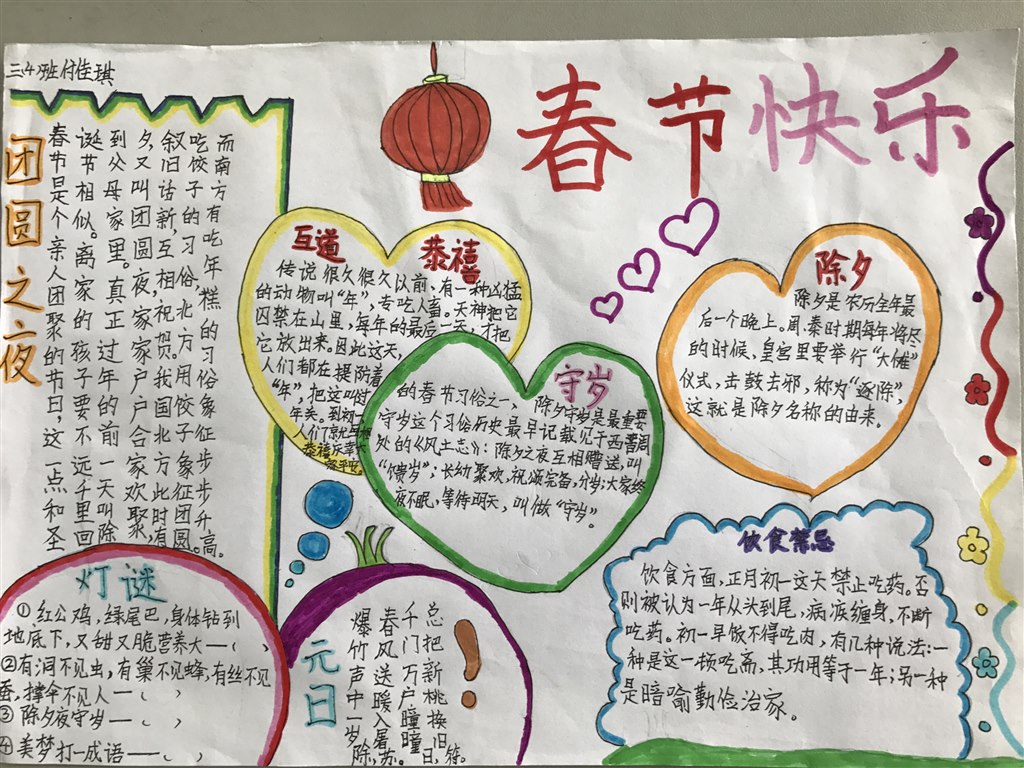 三(4)班付佳琪
春节快乐
团圆之夜
春节是个亲人团聚的节日,这一点和圣
诞节相似。离家的孩子要不远千里回
到父母家里。真正过年的前一天叫除
夕,又叫团圆夜,家家户户合家欢聚,
叙旧话新,互相祝贺。我国北方此时有
吃饺子的习俗,北方用饺子象征团圆。
而南方有吃年糕的习俗象征步步升高。
互道恭禧
传说很久很久以前,有一种凶猛
的动物叫“年”,专吃人畜。天神把它
囚禁在山里,每年的最后一天,才把
它放出来。因此这天,
人们都在提防着
“年”,把这叫时
年关,到初一
人们就互相
恭禧
守岁
除夕守岁是最重要
的春节习俗之一,
守岁这个习俗历史最早记载见于西晋周
处的《风土志》:除夕之夜互相赠送,叫
“馈岁”;长幼聚欢,祝颂完备,分岁;大家终
夜不眠,等待明天,叫做“守岁”。
除夕
除夕是农历全年最
后一个晚上。周、秦时期每年将尽
的时候,皇宫里要举行“大傩”
仪式,击鼓去邪,称为“逐除”,
这就是除夕名称的由来。
灯谜
①红公鸡,绿尾巴,身体钻到
地底下,又甜又脆营养大—( )
②有洞不见虫,有巢不见蜂,有丝不见
蚕,撑伞不见人—( )
③除夕夜守岁—( )
④美梦打一成语——( )
元日
爆竹声中一岁除,
春风送暖入屠苏。
千门万户曈曈日,
总把新桃换旧符。
饮食禁忌
饮食方面,正月初一这天禁止吃药。否
则被认为一年从头到尾,病疾缠身,不断
吃药。初一早饭不得吃肉,有几种说法:一
种是这一顿吃斋,其功用等于一年;另一种
是暗喻勤俭治家。